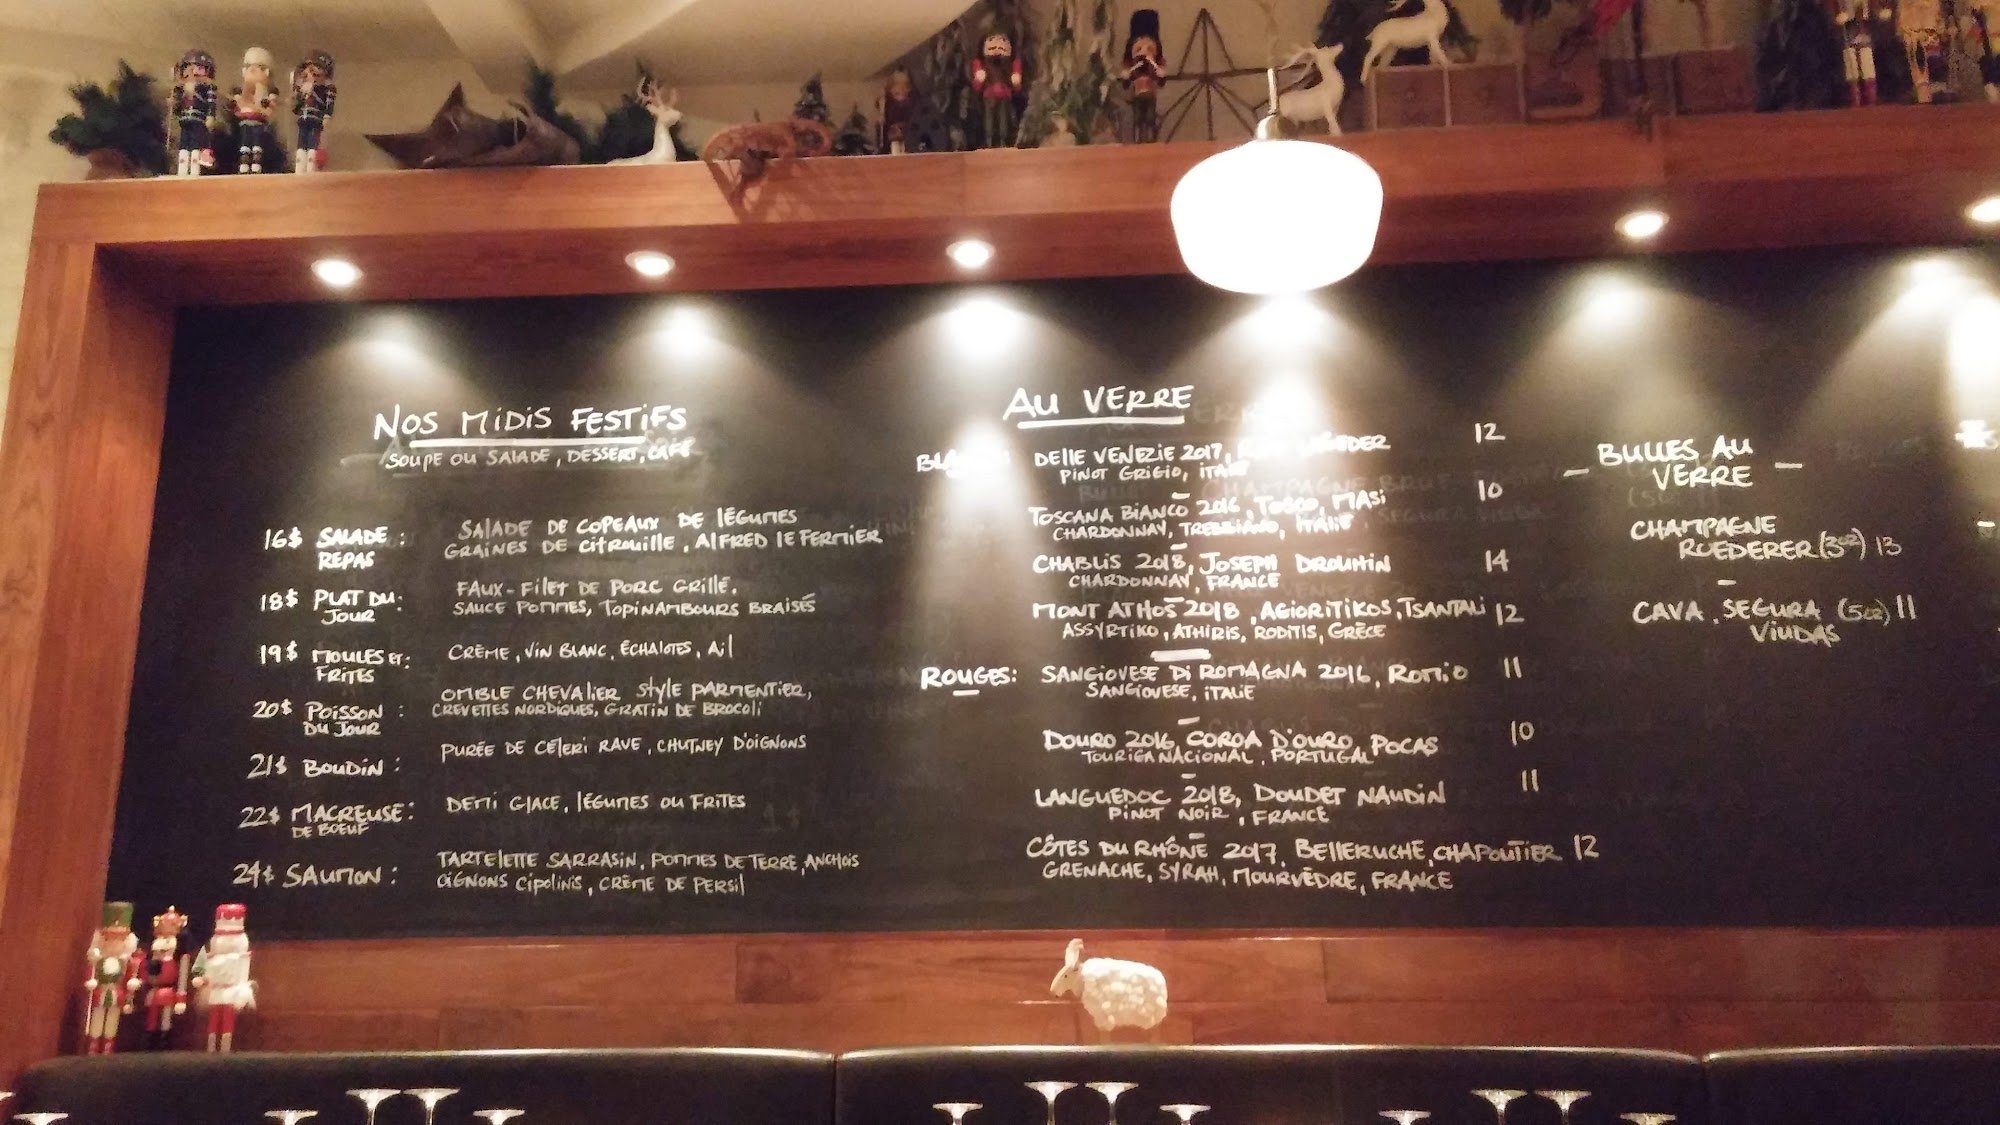 NOS MiDiS FESTiFS
SOUPE OU SALADE, DESSERT, CAFÉ
16$ SALADE REPAS : SALADE DE COPEAUX DE LÉGUMES
GRAINES DE CITROUILLE, ALFRED LE FERMIER
18$ PLAT DU JOUR : FAUX-FILET DE PORC GRILLÉ.
SAUCE POMMES, TOPINAMBOURS BRAISÉS
19$ MOULES ET FRITES : CRÈME, VIN BLANC, ÉCHALOTES, AIL
20$ POISSON DU JOUR : OMBLE CHEVALIER STYLE PARMENTIER,
CREVETTES NORDIQUES, GRATIN DE BROCOLI
21$ BOUDIN : PURÉE DE CÉLERI RAVE, CHUTNEY D'OIGNONS
22$ MACREUSE DE BOEUF : DEMI GLACE, LÉGUMES OU FRITES
24$ SAUMON : TARTELETTE SARRASIN, POMMES DE TERRE, ANCHOIS
OIGNONS CIPOLINIS, CRÈME DE PERSIL
AU VERRE
DELLE VENEZIE 2017, 12
PINOT GRIGIO, ITALIE
TOSCANA BIANCO 2016, TOSCO, MASI 10
CHARDONNAY, TREBBIANO, ITALIE
CHABLIS 2018, JOSEPH DROUHIN 14
CHARDONNAY, FRANCE
MONT ATHOS 2018, AGIORITIKOS, TSANTALI 12
ASSYRTIKO, ATHIRIS, RODITIS, GRÈCE
ROUGES: SANGIOVESE DI ROMAGNA 2016, ROMIO 11
SANGIOVESE, ITALIE
DOURO 2016, COROA D'OURO, POCAS 10
TOURIGA NACIONAL, PORTUGAL
LANGUEDOC 2018, DOUDET NAUDIN 11
PINOT NOIR, FRANCE
CÔTES DU RHÔNE 2017, BELLERUCHE, CHAPOUTIER 12
GRENACHE, SYRAH, MOURVÈDRE, FRANCE
BULLES AU
VERRE
CHAMPAGNE
ROEDERER (3oz) 13
CAVA, SEGURA (5oz) 11
VIUDAS